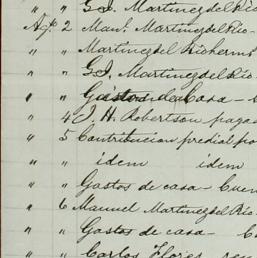 " " G. I. Martinez del Rio
Ap. 2 Man.l Martinez del Rio-
" " Martinez del Rio herms
" " G. I. Martinez del Rio
" " Gastos de Casa -
" 4 J. H. Robertson paga
" 5 Contribucion predial po
" " idem idem
" " Gastos de casa - Cuen
" 6 Manuel Martinez del Rio
" " Gastos de casa - C
" " Carlos Flores